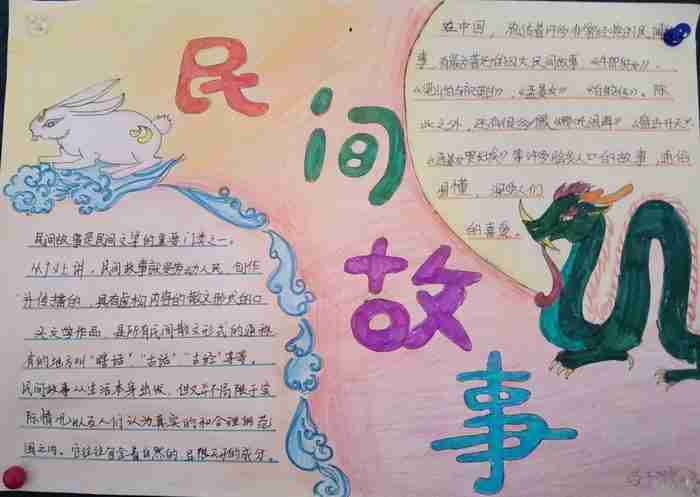 民
间
故
事
在中国，流传着许多非常经典的民间故
事，有最著名的四大民间故事，《牛郎织女》、
《梁山伯与祝英台》、《孟姜女》《白蛇传》。除
此之外，还有很多
《孟姜女哭长城》等许多脍炙人口的故事，通俗
易懂，深受人们
的喜爱。
民间故事是民间文学的重要门类之一。
从广义上讲，民间故事就是劳动人民创作
并传播的，具有虚构内容的散文形式的口
头文学作品，是所有民间散文形式的通称
有的地方叫"瞎话""古话""古经"等等。
民间故事从生活本身出发，但又并不局限于实
际情况以及人们认为真实的和合理的范
围之内。它往往包含着自然的